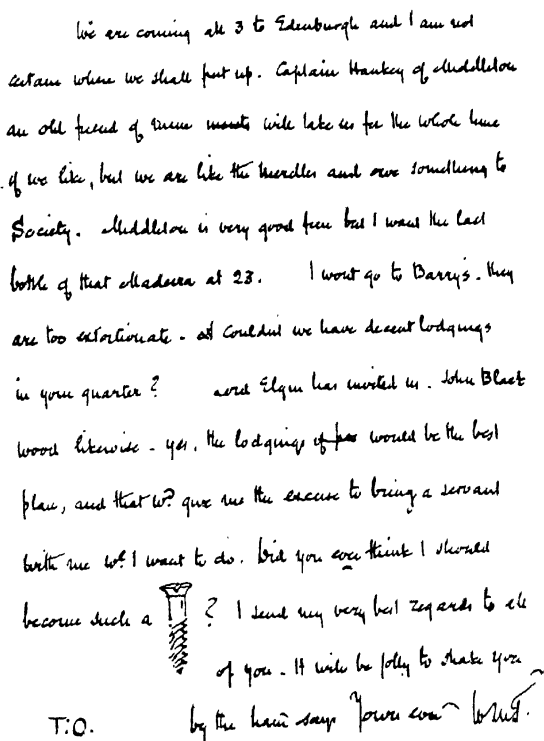 We are coming all 3 to Edinburgh and I am not
certain where we shall put up. Captain Hankey of Middleton
an old friend of mine will take us for the whole time
if we like, but we are like the Merdles and owe something to
Society. Middleton is very good fun but I want the last
bottle of that Madeira at 23. I wont go to Barry's. they
are too extortionate - Couldn't we have decent lodgings
in your quarter? Lord Elgin has invited us. John Black
wood likewise - yes, the lodgings would be the best
plan, and that wd. give me the excuse to bring a servant
with me wh. I want to do. Did you ever think I should
become such a ? I send my very best regards to all
of you. It will be jolly to shake you
by the hand says Yours ever WMT.
T.O.